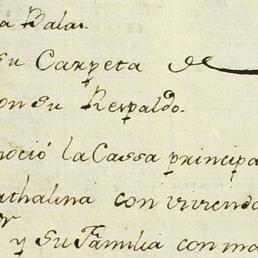 a Bala.
su Carpeta de
on su Respaldo.
noció la Cassa principa
athalina con vivienda
y su Familia con ma